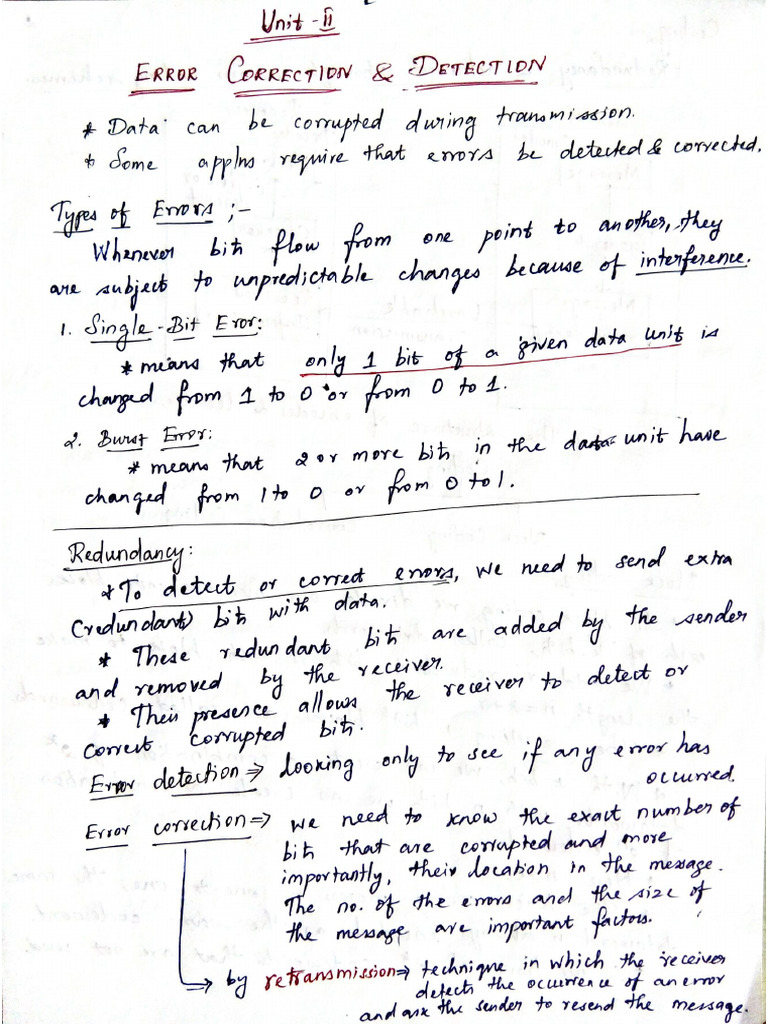 Unit - II
ERROR CORRECTION & DETECTION
* Data can be corrupted during transmission.
* Some applns require that errors be detected & corrected.
Types of Errors :-
Whenever bits flow from one point to another, they
are subject to unpredictable changes because of interference.
1. Single-Bit Error:
* means that only 1 bit of a given data unit is
changed from 1 to 0 or from 0 to 1.
2. Burst Error:
* means that 2 or more bits in the data unit have
changed from 1 to 0 or from 0 to 1.
Redundancy:
* To detect or correct errors, we need to send extra
(redundant) bits with data.
* These redundant bits are added by the sender
and removed by the receiver.
* Their presence allows the receiver to detect or
correct corrupted bits.
Error detection ⇒ looking only to see if any error has
occurred.
Error correction ⇒ we need to know the exact number of
bits that are corrupted and more
importantly, their location in the message.
The no. of the errors and the size of
the message are important factors.
→ by retransmission ⇒ technique in which the receiver
detects the occurrence of an error
and ask the sender to resend the message.